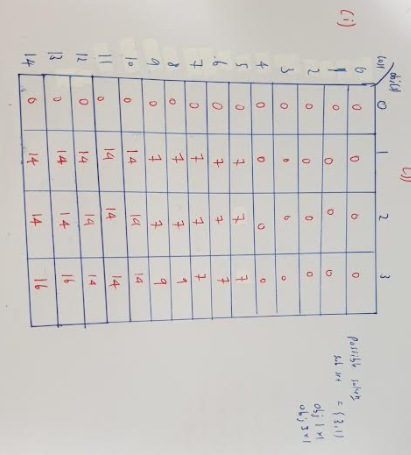 0 1 2 3
0 0 0 0 0
1 0 0 0 0
2 0 0 0 0
3 0 0 0 0
4 0 0 0 0
5 0 7 7 7
6 0 7 7 7
7 0 7 7 7
8 0 7 7 9
9 0 7 7 9
10 0 14 14 14
11 0 14 14 14
12 0 14 14 14
13 0 14 14 16
14 0 14 14 16
(i)
Possible
sub set = {3,1}
obj 1x1
obj 3x1